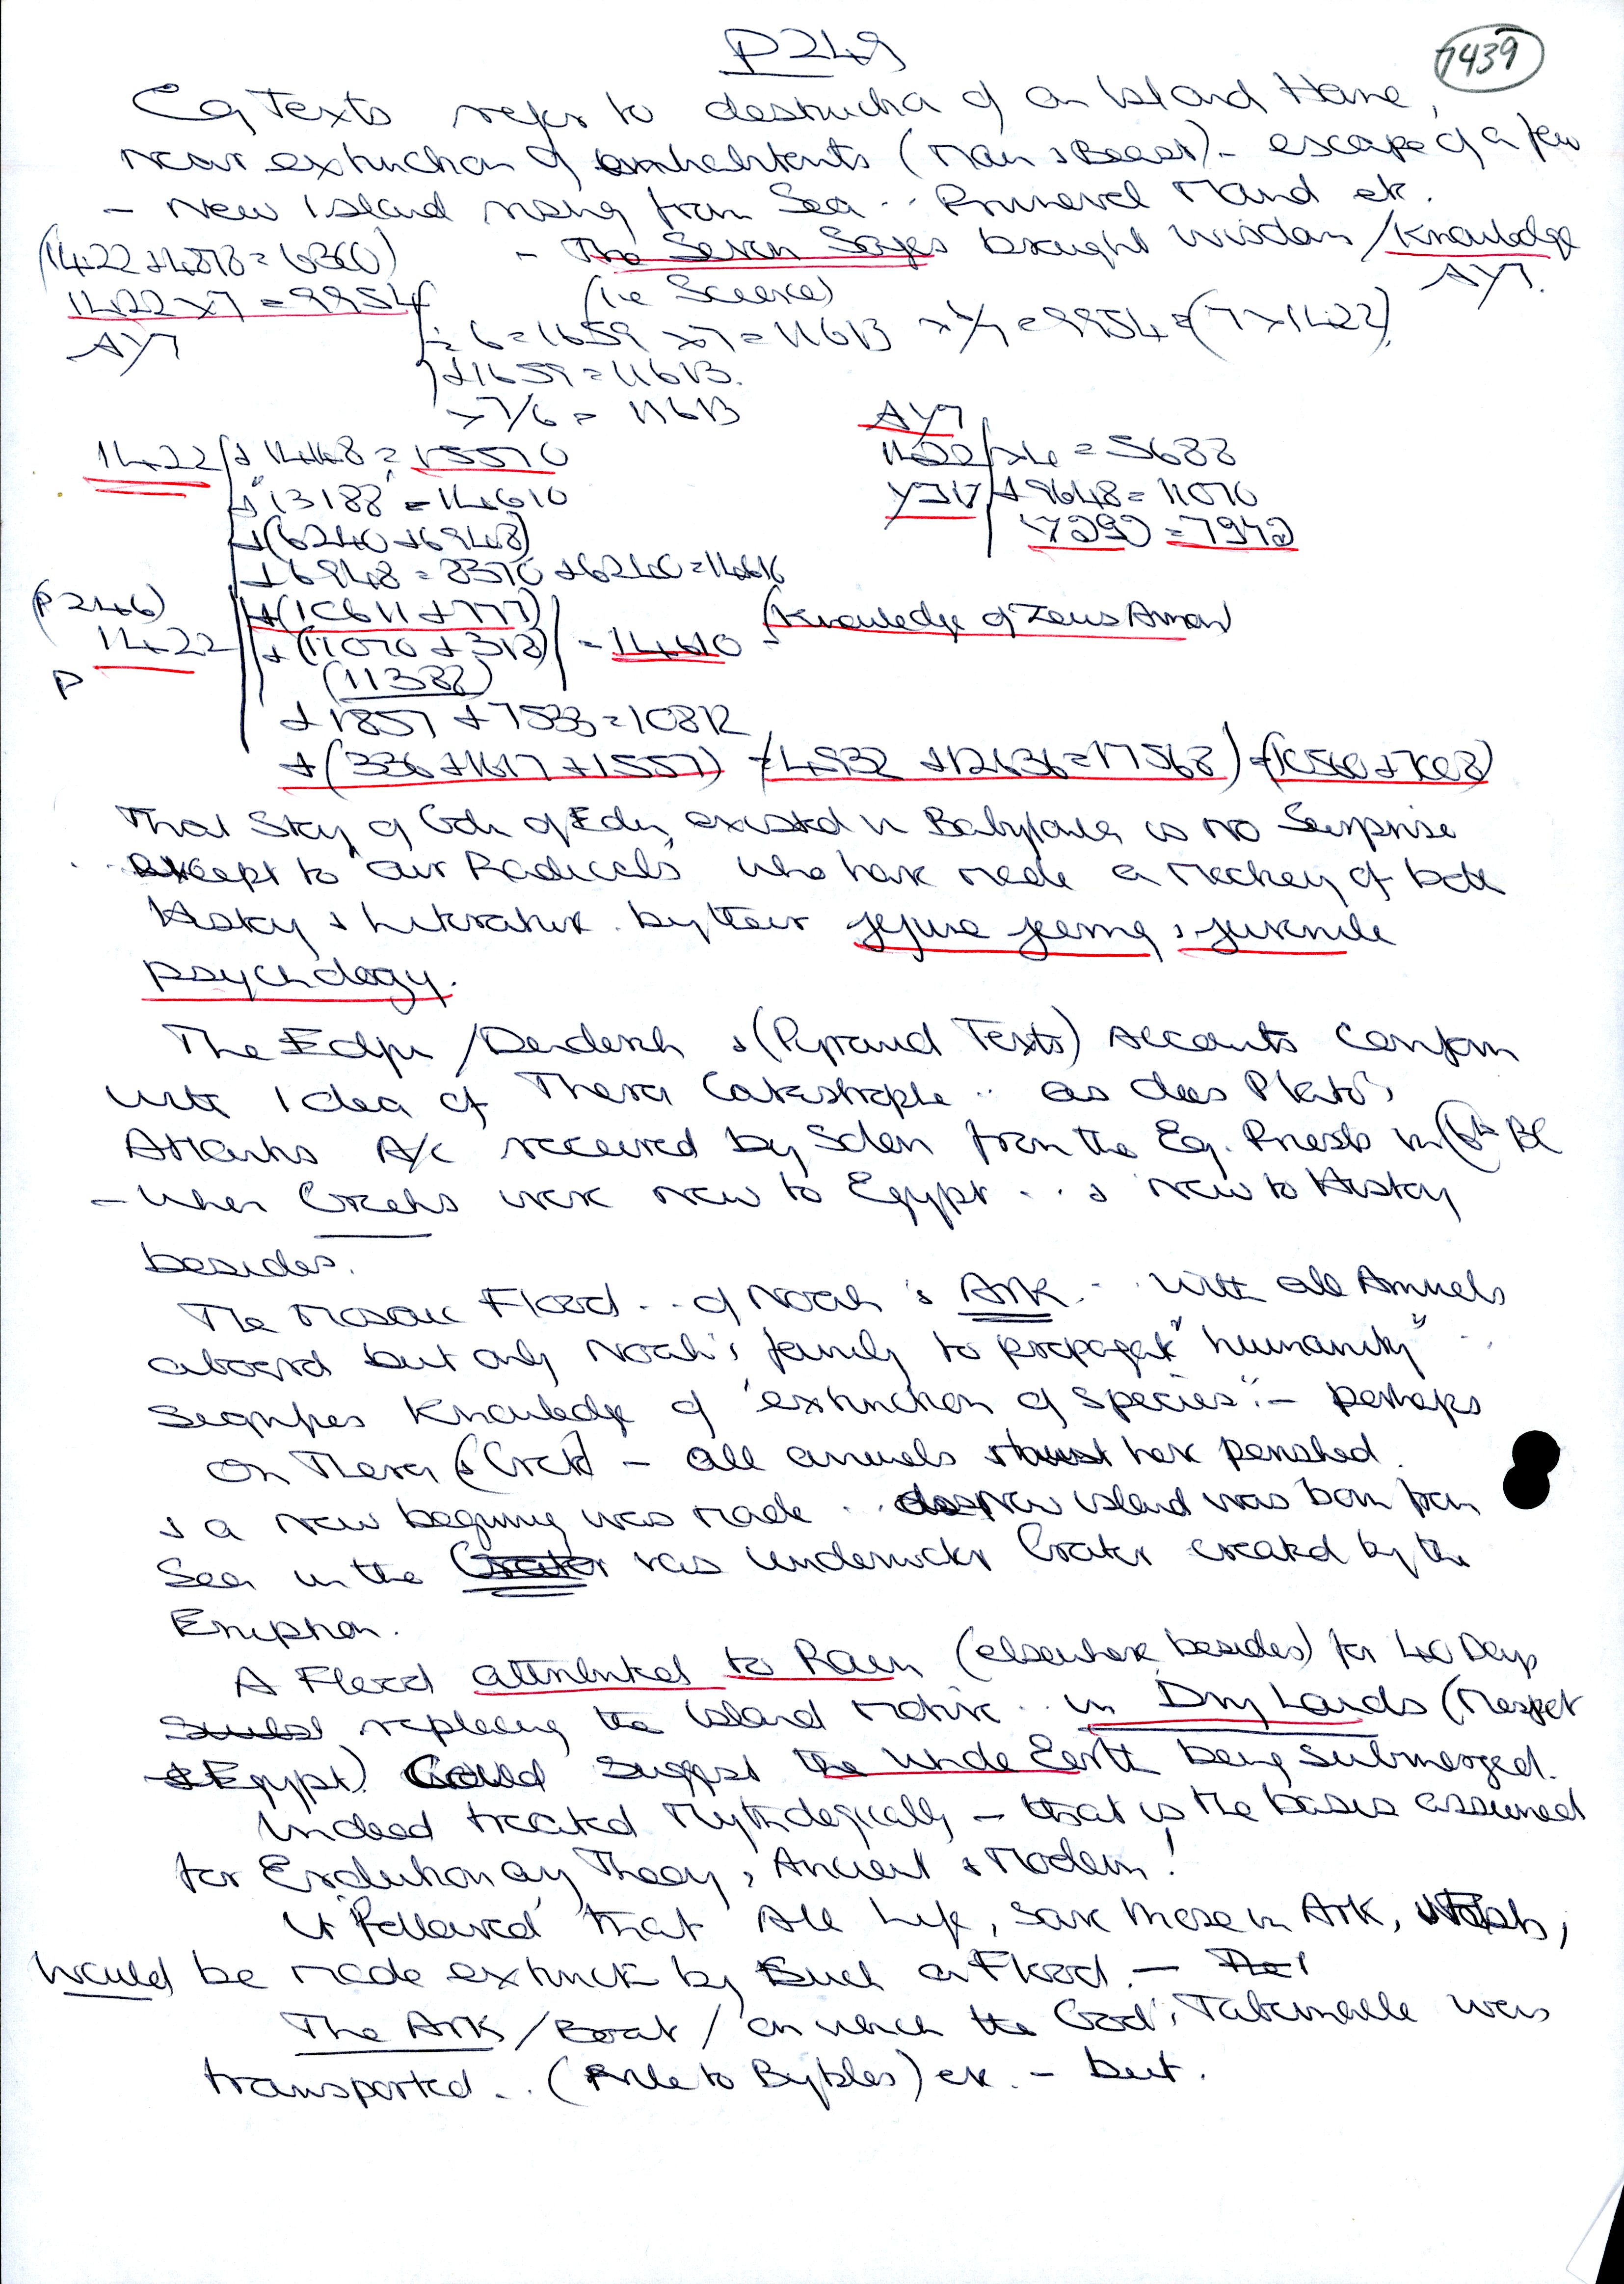 P249
7439
Eg Texts refer to destruction of an Island Home,
near extinction of inhabitants (Man & Beast) - escape of a few
- New Island rising from Sea .. Primeval Mound etc.
(1422 + 4878 = 6300)
- The Seven Sages brought wisdom / Knowledge
1422 x 7 = 9954
(i.e Science)
AY7.
AY7
÷ 6 = 1659 x 7 = 11613 x 6/7 = 9954 = (7 x 1422)
+ 1659 = 11613.
x 7/6 = 11613
AY7
1422 + 14148 = 15570
1422 x 4 = 5688
+ "13188" = 14610
+ 9648 = 11070
+ (6240 + 6948)
+ 6948 = 8370 + 6240 = 14610
(P246)
+ (10611 + 777)
(Knowledge of Zeus Amon)
1422
+ (11070 + 318) = 14610
P
(11388)
+ 1857 + 7533 = 10812
+ (336 + 1617 + 1557) = 4932 + 12636 = 17568) = (10560 + 7008)
That Story of Gdn of Eden existed in Babylonia is no Surprise
.. except to "our Radicals" who have made a mockery of both
History & Literature by their jejune & juvenile
psychology.
The Edfu / Denderah & (Pyramid Texts) Accounts conform
with Idea of Thera Catastrophe .. as does Plato's
Atlantis A/c received by Solon from the Eg. Priests in (6th BC
- when Greeks were new to Egypt .. & new to History
besides.
The Mosaic Flood .. of Noah & ARK .. with all Animals
aboard but only Noah's family to propagate "humanity" ..
Signifies Knowledge of "extinction of Species" - perhaps
on Thera (& Crete) - all animals must have perished
& a new beginning was made .. new island was born from
Sea in the Crater vas underwater Crater created by the
Eruption.
A Flood attributed to Rain (elsewhere besides) for 40 Days
replacing the island motive .. in Dry Lands (Mespot
& Egypt) Could suggest the whole Earth being submerged.
Indeed treated Mythologically - that is the basis assumed
for Evolutionary Theory, Ancient & Modern!
It "followed" that All Life, save those in Ark,
would be made extinct by Such a Flood. -
The ARK / Boat / on which the God's Tabernacle was
transported .. (to Byblos) etc. - but.